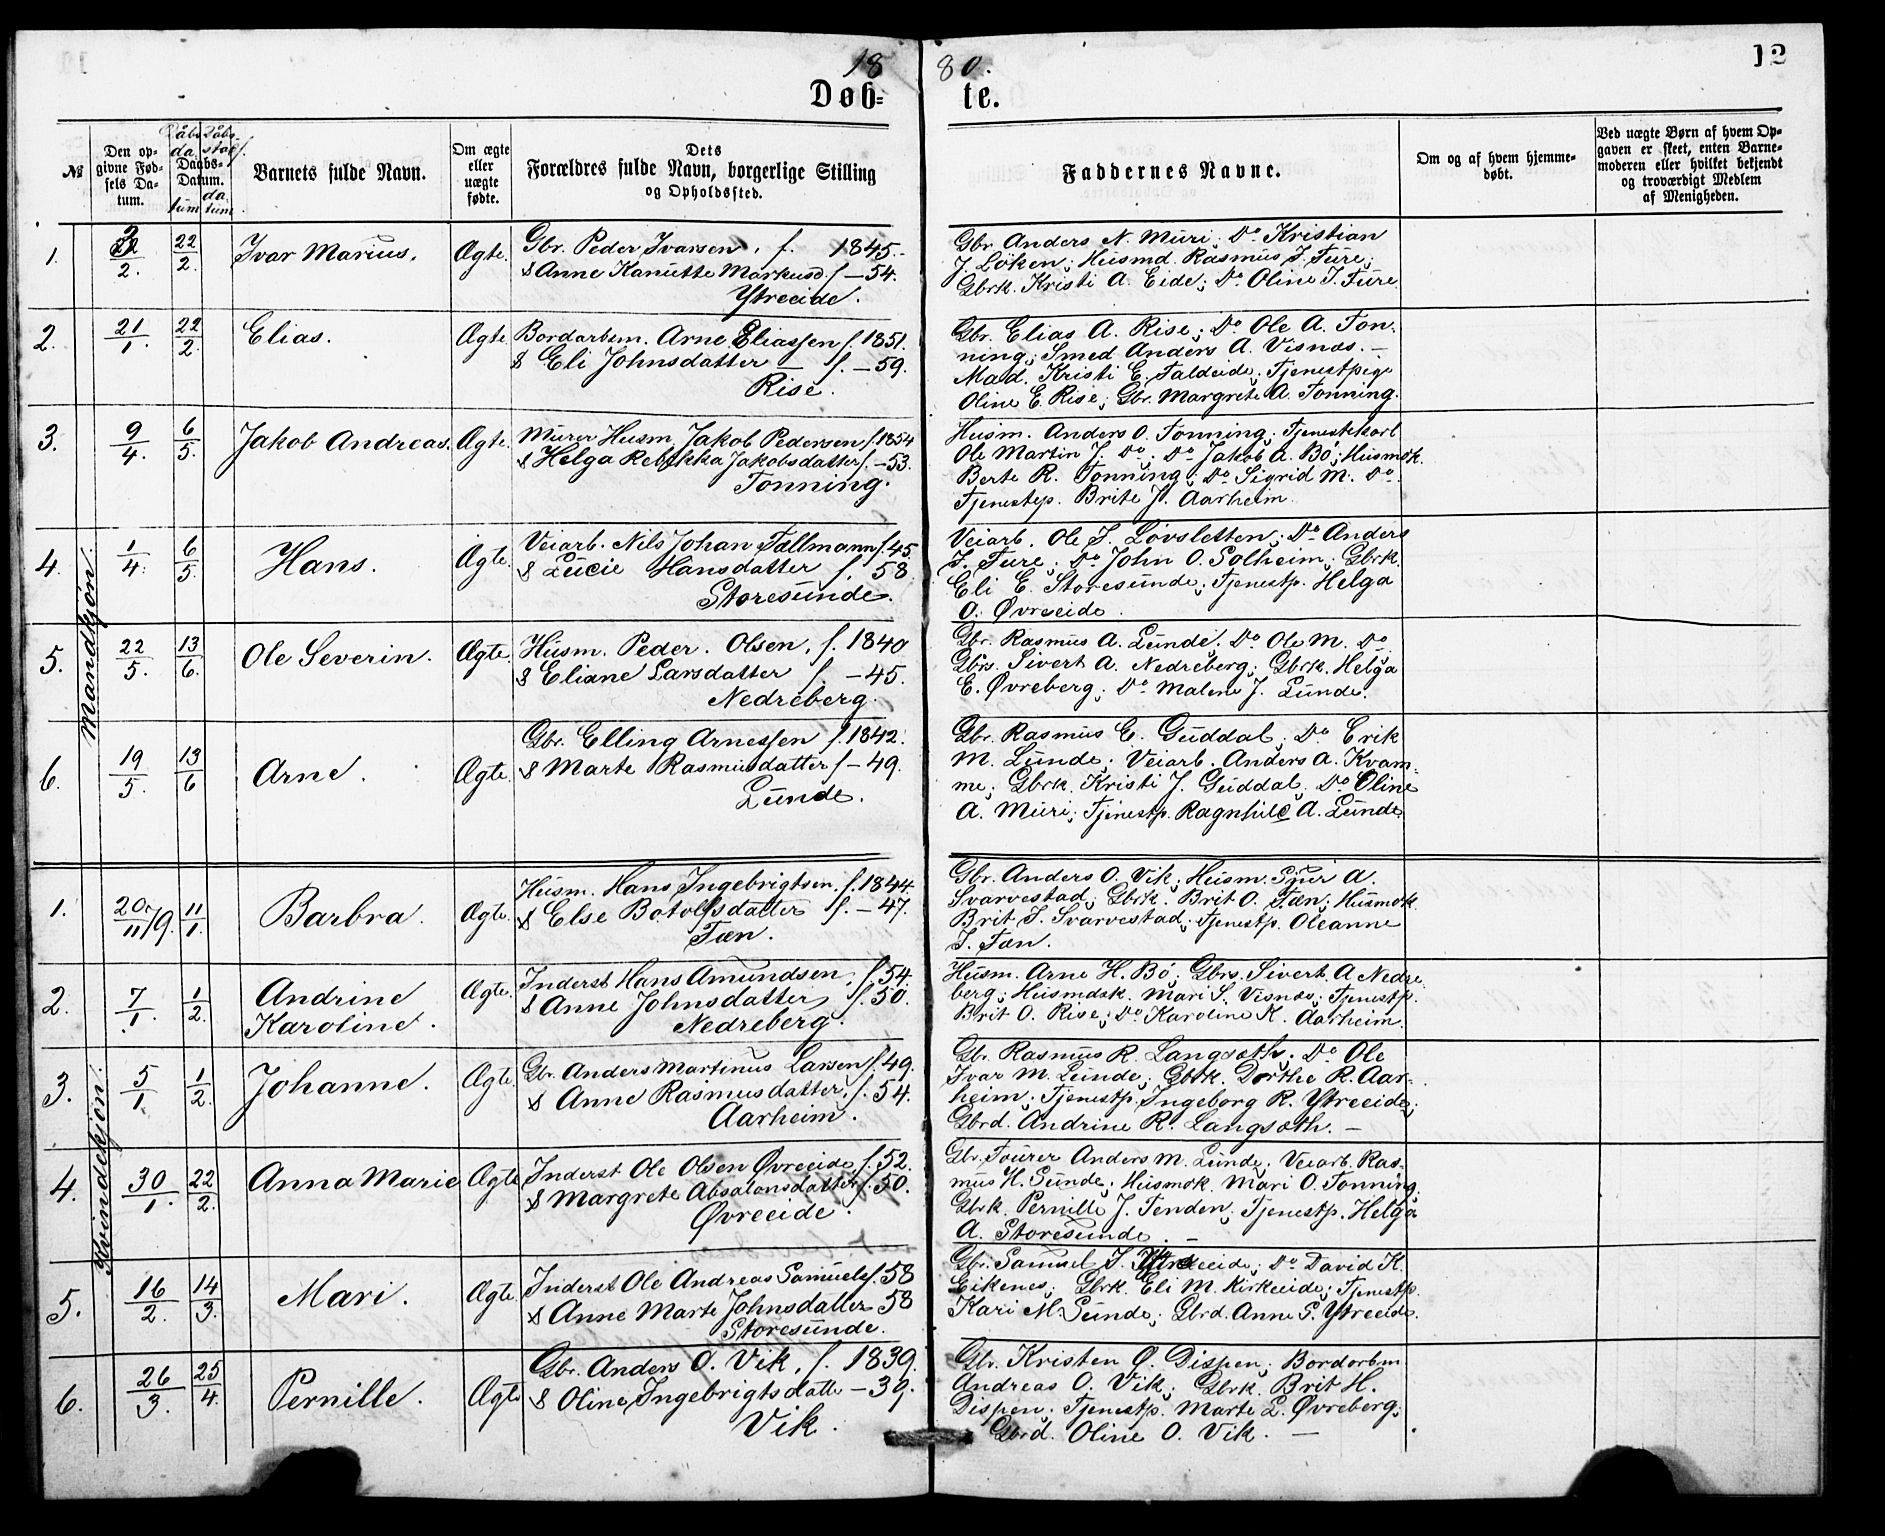 1880.
12
Døb-te.
№
Den op-
givne Fød-
sels Da-
tum.
Daabs-
Datum.
Barnets fulde Navn.
Om ægte
eller
uægte
fødte.
Dets
Forældres fulde Navn, borgerlige Stilling
og Opholdssted.
Faddernes Navne.
Om og af hvem hjemme-
døbt.
Ved uægte Børn af hvem Op-
gaven er skeet, enten Barne-
moderen eller hvilket bekjendt
og troværdigt Medlem
af Menigheden.
Mandkjøn.
1. 2/2. 22/2. Ivar Marius. Ægte.
Gbr. Peder Ivarsen, f. 1845.
& Anne Kanutte Markusd. f. – 54.
Ytreeide.
Gbr. Anders N. Muri; Do Kristian
J. Løken; Husmd. Rasmus J. Fure;
Gbrk. Kristi A. Eide; Do Oline J. Fure
2. 21/1. 22/2. Elias. Ægte.
Bordarbm. Arne Eliassen f. 1851.
& Eli Johnsdatter f. – 59.
Rise.
Gbr. Elias A. Rise; Do Ole A. Ton-
ning; Smed Anders A. Visnæs. –
Mad. Kristi E. Faldeide; Tjenestpige
Oline E. Rise; Gbr. Margrete A. Tonning.
3. 9/4. 6/5. Jakob Andreas. Ægte.
Murer Husm. Jakob Pedersen f. 1854
& Helga Rebekka Jakobsdatter f. – 53.
Tonning.
Husm. Anders O. Tonning; Tjenestkarl
Ole Martin J. Do; Do Jakob A. Bö; Husmdk.
Berte R. Tonning; Do Sigrid M. Do.
Tjenestep. Brite J. Aarheim.
4. 1/4. 6/5. Hans. Ægte.
Veiarb. Nils Johan Tallmann f. 45.
& Lucie Hansdatter f. 58
Storesunde.
Veiarb. Ole S. Løvsletten; Do Anders
J. Fure; Do John O. Solheim; Gbrk.
Eli E. Storesunde; Tjenestp. Helga
O. Øvreeide.
5. 22/5. 13/6. Ole Severin. Ægte.
Husm. Peder Olsen, f. 1840
& Eliane Larsdatter f. – 45.
Nedreberg.
Gbr. Rasmus A. Lunde; Do Ole M. Do
Gbrs. Sivert A. Nedreberg; Gbrk. Helga
E. Øvreberg; Do Malene J. Lunde.
6. 19/5. 13/6 Arne. Ægte.
Gbr. Elling Arnessen f. 1842.
& Marte Rasmusdatter f. – 49.
Lunde.
Gbr. Rasmus E. Guddal; Do Erik
M. Lunde; Veiarb. Anders A. Kvam-
me; Gbrk. Kristi J. Guddal; Do Oline
A. Muri; Tjenestp. Ragnhild A. Lunde
Kvindekjøn.
1. 20/11 79. 11/1. Barbra. Ægte.
Husm. Hans Ingebrigtsen. f. 1844.
& Else Botolfsdatter f. – 47.
Tæn.
Gbr. Anders O. Vik; Husm. Sjur A.
Svarvestad; Gbrk. Brit O. Tæn; Husmdk.
Brit S. Svarvestad; Tjenestp. Oleanne
S. Tæn.
2. 7/1. 1/2. Andrine
Karoline. Ægte.
Inderst Hans Amundsen, f. 54.
& Anne Johnsdatter f. 50.
Nedreberg.
Husm. Arne H. Bö; Gbrs. Sivert A Nedre
berg; Husmdsk. Mari S. Visnæs; Tjenestp.
Brit O. Rise; Do Karoline K. Aarheim.
3. 5/1 1/2. Johanne. Ægte.
Gbr. Anders Martinus Larsen f. 49.
& Anne Rasmusdatter, f. 54.
Aarheim.
Gbr. Rasmus R. Langsæth; Do Ole
Ivar M. Lunde; Gbrk. Dorthe R. Aar-
heim; Tjenestp. Ingeborg R. Ytreeide;
Gbrd. Andrine R. Langsæth. –
4. 30/1. 22/2. Anna Marie Ægte
Inderst Ole Olsen Øvreeide f. 52.
& Margrete Absalonsdatter f. 50.
Øvreeide.
Gbr. Fourer Anders M. Lunde; Veiarb. Ras-
mus H. Sunde; Husmdk. Mari O. Tonning;
Gbrk. Pernille J. Tenden; Tjenestp. Helga
A. Storesunde. –
5. 16/2. 14/3. Mari. Ægte.
Inderst Ole Andreas Samuels f. 58
& Anne Marte Johnsdatter 58
Storesunde.
Gbr. Samuel S. Ytreeide; Do David K.
Eikenes; Gbrk. Eli M. Kirkeeide; Tjenestp.
Kari M. Sunde; Gbrd. Anne S. Ytreeide.
6. 26/3. 25/4. Pernille. Ægte
Gbr. Anders O. Vik, f. 1839.
& Oline Ingebrigtsdatte – 39.
Vik.
Gbr. Kristen Ø. Dispen; Bordarbm
Andreas O. Vik; Gbrk. Brit H.
Dispen; Tjenestp. Marte L. Øvreberg;
Gbrd. Oline O. Vik. –